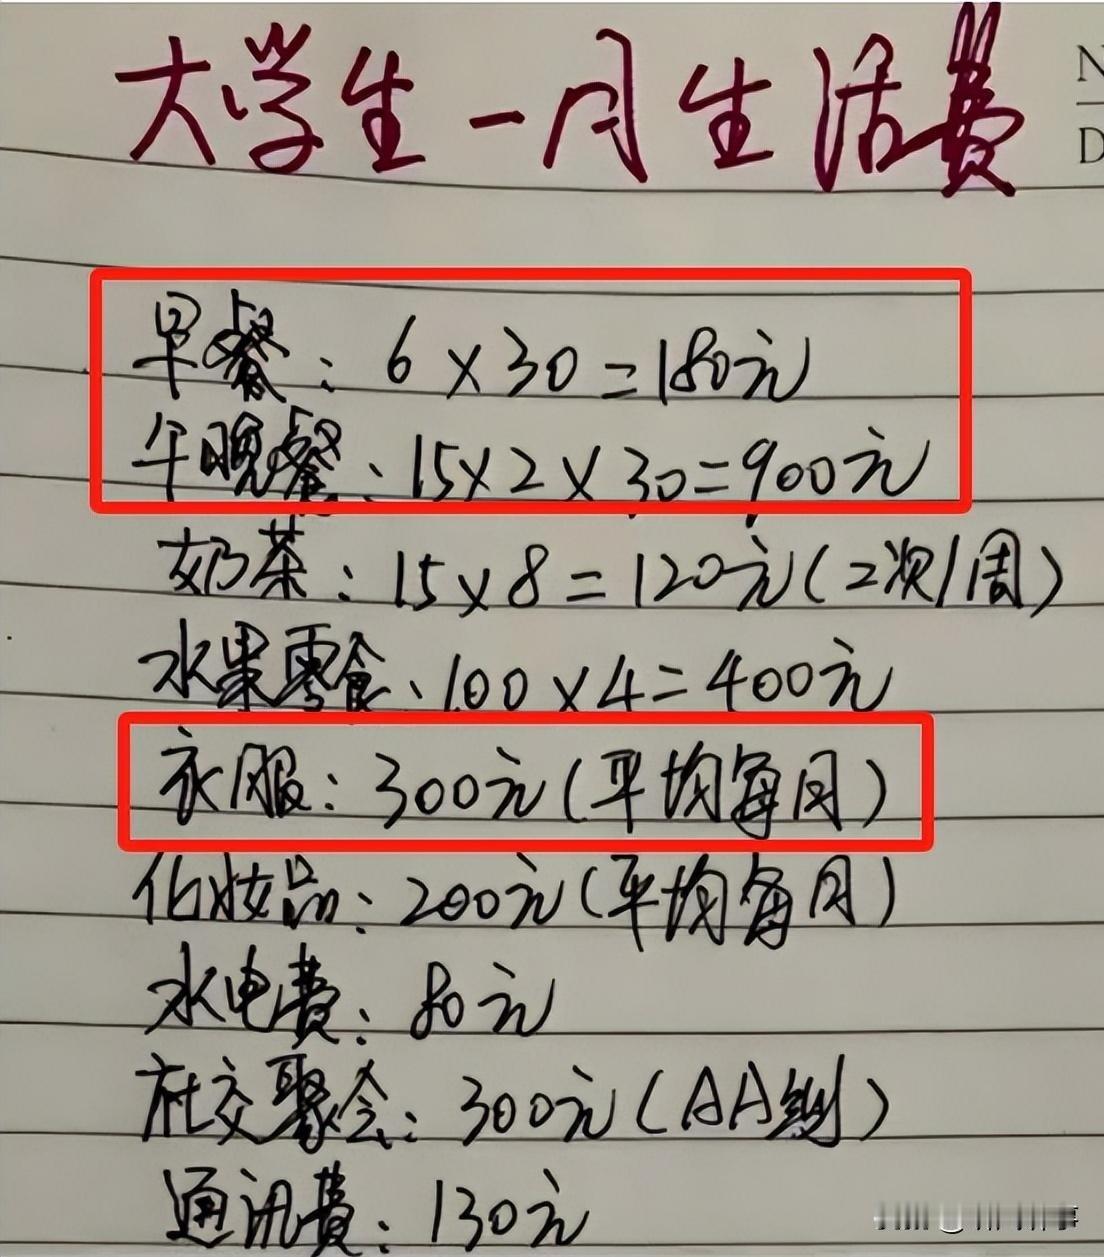 大学生一月生活费
N
D
早餐：6×30=180元
午晚餐：15×2×30=900元
奶茶：15×8=120元(2次/周)
水果零食：100×4=400元
衣服：300元(平均每月)
化妆品：200元(平均每月)
水电费：80元
社交聚会：300元(AA制)
通讯费：130元